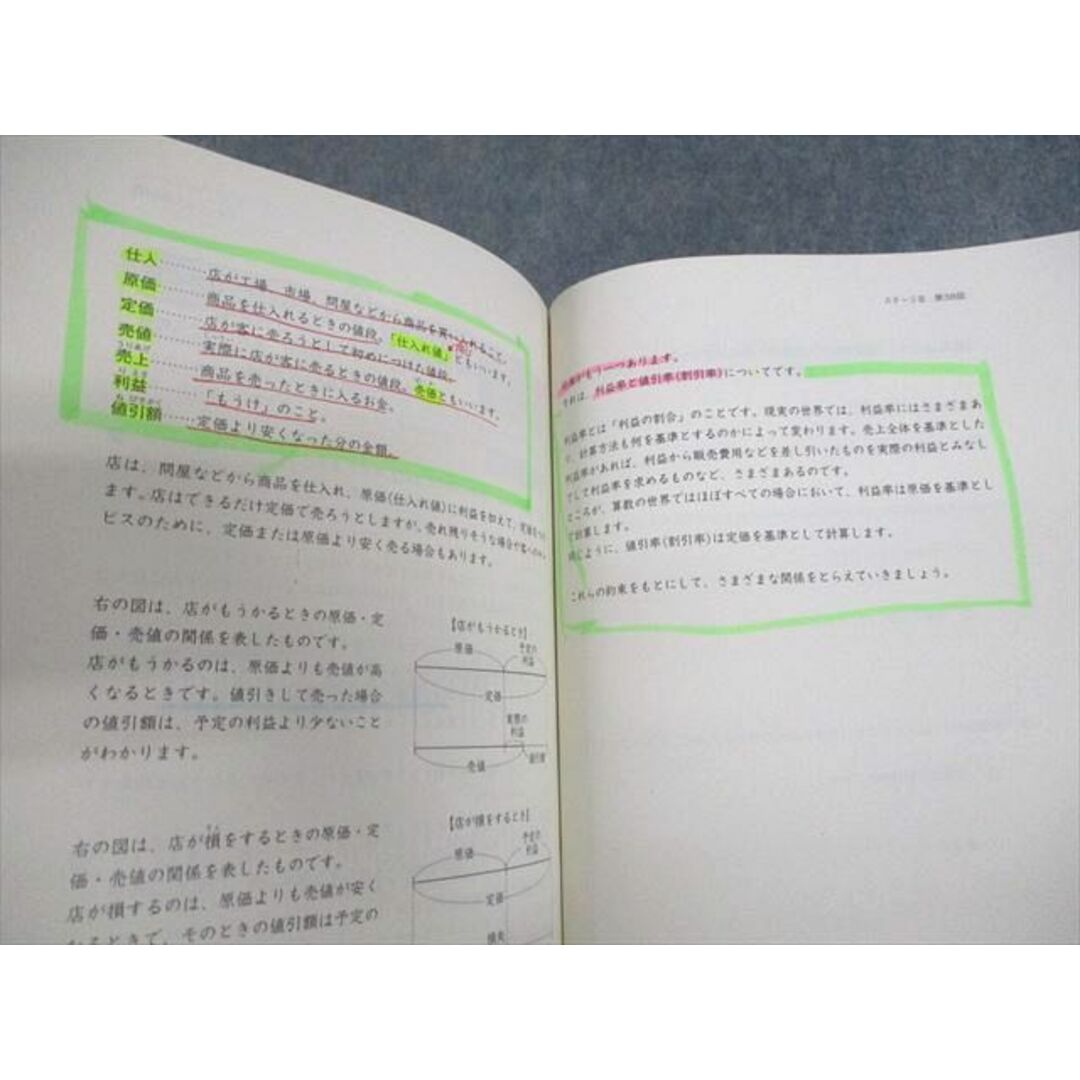 仕入………店が工場、市場、問屋などから商品を買い入れること。
原価………商品を仕入れるときの値段。「仕入れ値」ともいいます。
定価………店が客に売ろうとして初めにつけた値段。
売値………実際に店が客に売るときの値段。売価ともいいます。
売上………商品を売ったときに入るお金。
利益………「もうけ」のこと。
値引額………定価より安くなった分の金額。
店は、問屋などから商品を仕入れ、原価(仕入れ値)に利益を加えて、定価を
ます。店はできるだけ定価で売ろうとしますが、売れ残りそうな場合や客への
ビスのために、定価または原価より安く売る場合もあります。
右の図は、店がもうかるときの原価・定
価・売値の関係を表したものです。
店がもうかるのは、原価よりも売値が高
くなるときです。値引きして売った場合
の値引額は、予定の利益より少ないこと
がわかります。
【店がもうかるとき】
原価 予定の利益
定価
実際の利益
売値 値引額
右の図は、店が損をするときの原価・定
価・売値の関係を表したものです。
店が損するのは、原価よりも売値が安く
なるときで、そのときの値引額は予定の
【店が損をするとき】
原価 予定の利益
定価
損失
第38回
もう一つあります。
それは、利益率と値引率(割引率)についてです。
利益率とは「利益の割合」のことです。現実の世界では、利益率にはさまざまあ
り、計算方法も何を基準とするのかによって変わります。売上全体を基準とした
利益率があれば、利益から販売費用などを差し引いたものを実際の利益とみなし
て利益率を求めるものなど、さまざまあるのです。
ところが、算数の世界ではほぼすべての場合において、利益率は原価を基準とし
て計算します。
同じように、値引率(割引率)は定価を基準として計算します。
これらの約束をもとにして、さまざまな関係をとらえていきましょう。